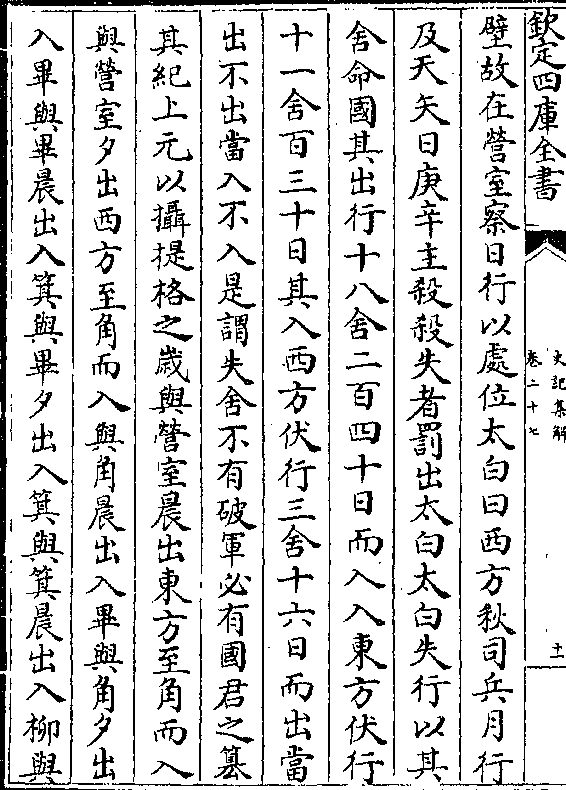 欽定四庫全書
史記集解
卷二十七
十一
壁故在營室察日行以處位太白曰西方秋司兵月行
及天矢日庚辛主殺殺失者罰出太白太白失行以其
舍命國其出行十八舍二百四十日而入入東方伏行
十一舍百三十日其入西方伏行三舍十六日而出當
出不出當入不入是謂失舍不有破軍必有國君之簒
其紀上元以攝提格之歲與營室晨出東方至角而入
與營室夕出西方至角而入與角晨出入畢與角夕出
入畢與畢晨出入箕與畢夕出入箕與箕晨出入柳與